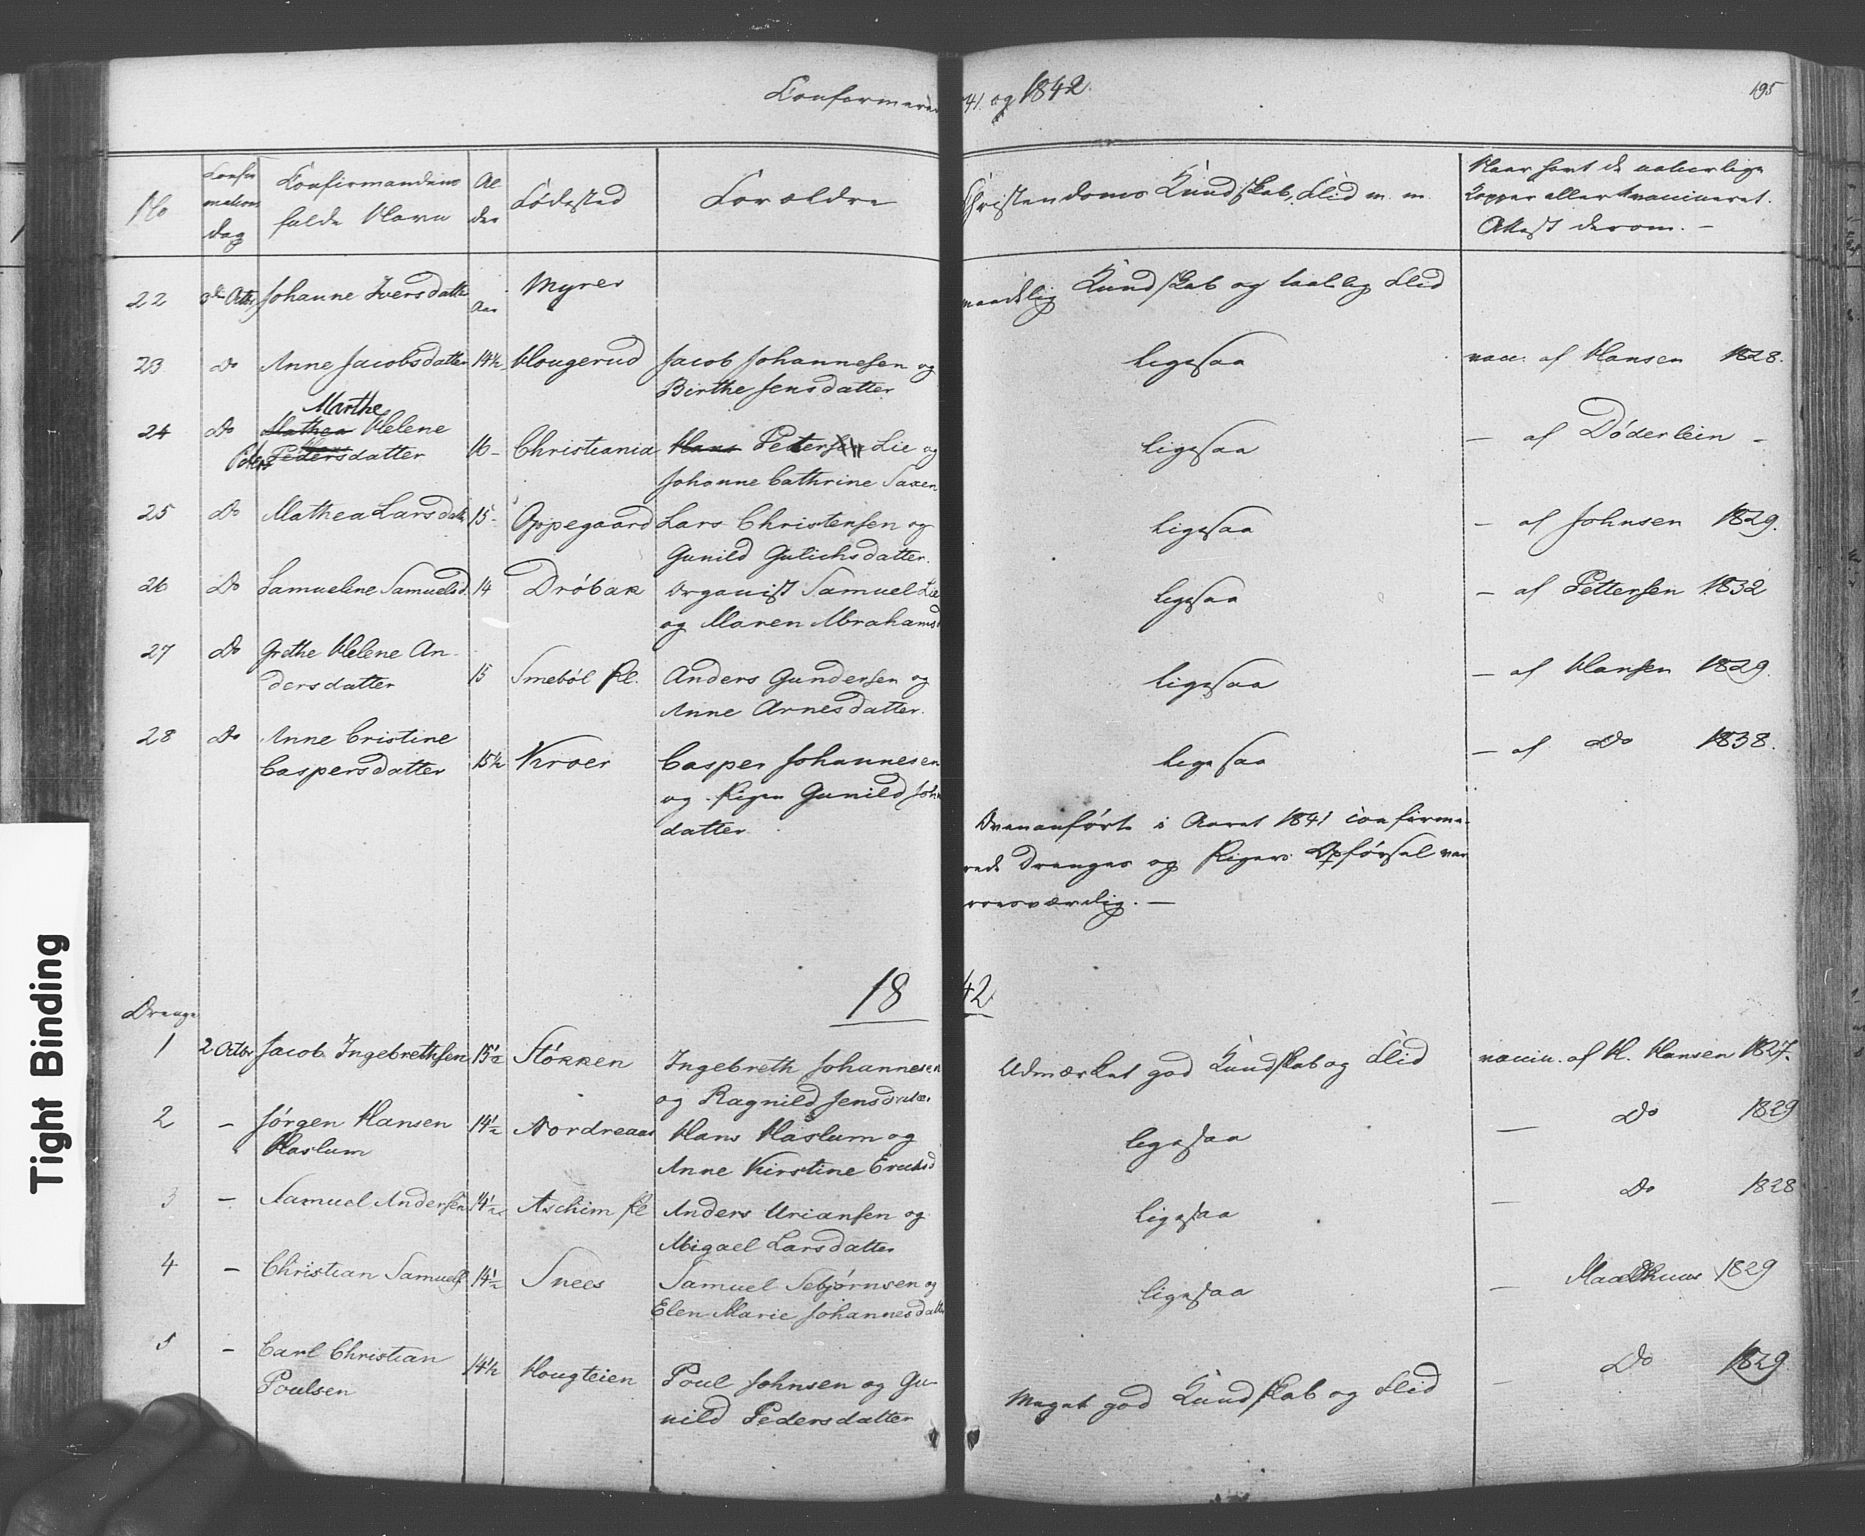 Confirmere
41. og 1842.
195
No
Confir
mations
Dag
Confirmandens
fulde Navn
Al
der
Födested
Forældre
Christendoms Kundskab, Flid m. m.
Naar havt de naturlige
Kopper eller vaccineret.
Attest derom. -
22 3die Octbr Johanne Iversdatter Aar Myrer maadelig Kundskab og taalelig Flid
23 Do Anne Jacobsdatter 14½ Hougerud Jacob Johannesen og ligesaa vacc. af Hansen 1828.
Birthe Jensdatter
Marthe
24 Do Mathea Helene
Peders Pedersdatter 16- Christiania Hans Petersen Lie og ligesaa - af Døderlein -
Johanne Cathrine Saxen
25 Do Mathea Larsdatter 15- Oppegaard Lars Christensen og ligesaa - af Johnsen 1829.
Gunild Gulichsdatter.
26 Do Samueline Samuelsd. 14 Dröbak Organist Samuel Lie ligesaa - af Pettersen 1832
og Maren Abrahamsd
27 Do Grethe Helene An-
dersdatter 15 Smeböl Pl. Anders Gundersen og ligesaa - af Hansen 1829.
Anne Arnesdatter.
28 Do Anne Cristine
Caspersdatter 15½ Kroer Casper Johannesen ligesaa - af Do 1838.
og Pigen Gunild Joh
datter
Ovenanförte i Aaret 1841 confirme-
rede Drenges og Pigers Opförsel var
roesværdig. -
1842.
Drenge
1 2 Octbr Jacob Ingebrethsen 15½ Stökken Ingebreth Johannesen Udmærket god Kundskab og Flid vaccin. af H. Hansen 1827.
og Ragnild Jensdatter
2 - Jørgen Hansen 14½ Nordreaas Hans Haslum og ligesaa - Do 1829
Haslum Anne Kirstine Ericksd
3 - Samuel Andersen 14½ Aschim Pl Anders Uriansen og ligesaa - Do 1828
Abigael Larsdatter
4 - Christian Samuels. 14½ Snees Samuel Sebjørnsen og ligesaa - Maalknus 1829
Elen Marie Johannesdatter
5 - Carl Christian 14½ Hougteien Poul Johnsen og Gu- Meget god Kundskab og Flid - Do 1829.
Poulsen nild Pedersdatter
Tight Binding